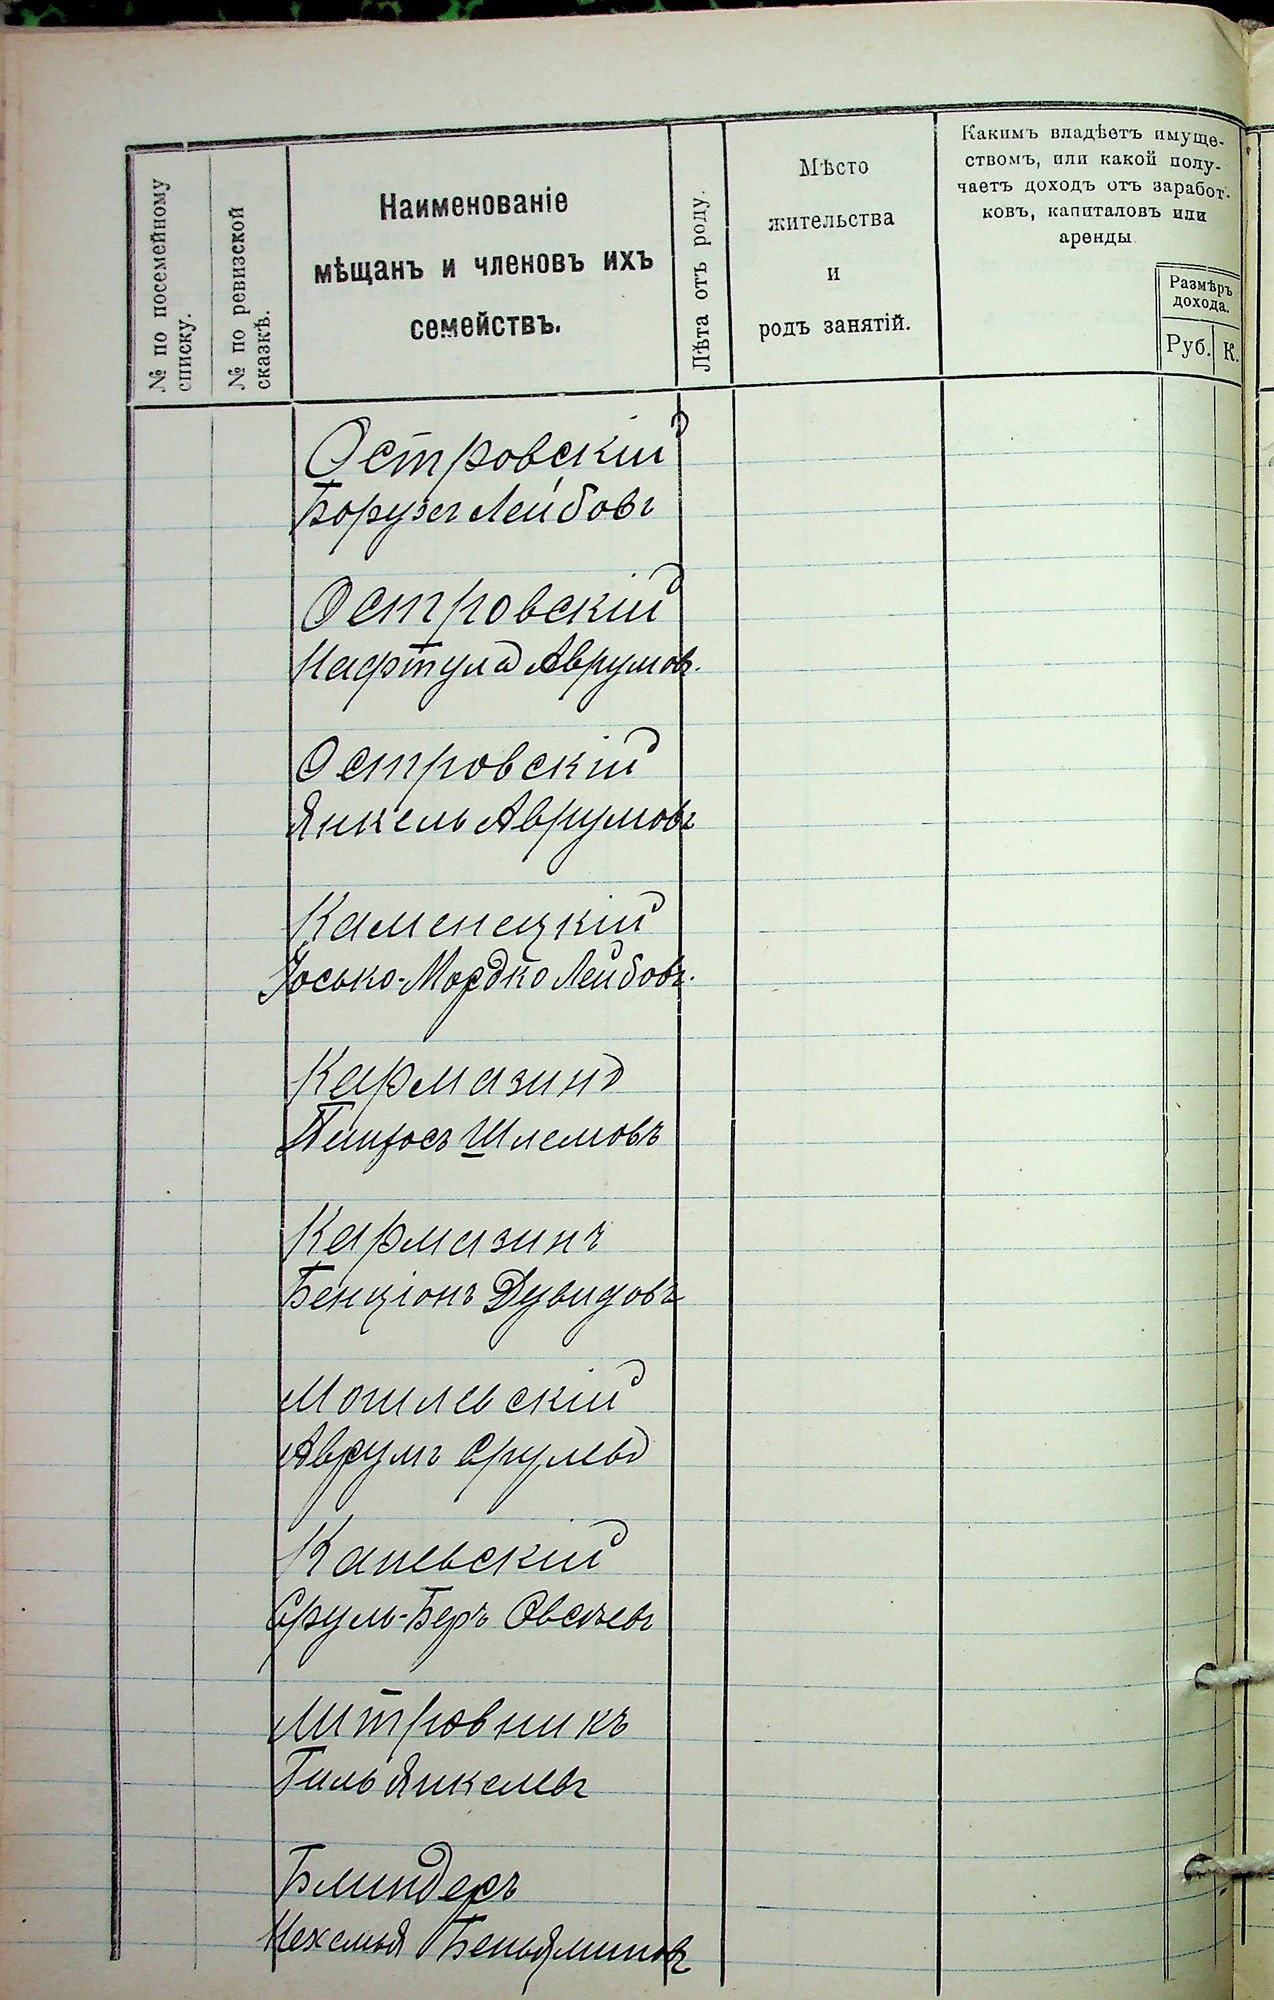 № по посемейному
списку.
№ по ревизской
сказкѣ.
Наименованіе
мѣщанъ и членовъ ихъ
семействъ.
Лѣта отъ роду.
Мѣсто
жительства
и
родъ занятій.
Какимъ владѣетъ имуще-
ствомъ, или какой полу-
чаетъ доходъ отъ заработ-
ковъ, капиталовъ или
аренды
Размѣръ
дохода.
Руб.
К.
Островскій
Борухъ Лейбовъ
Островскій
Нафтула Аврумов.
Островскій
Янкель Аврумовъ
Каменецкій
Іосько-Мордко Лейбовъ.
Кармазинъ
Пинхосъ Шлемовъ
Кармазинъ
Бенціонъ Дувидовъ
Могилевскій
Аврумъ Срулевъ
Каневскій
Сруль-Беръ Овсѣевъ
Литровникъ
Гиль Янкелевъ
Блиндеръ
Нехемья Беньяминовъ